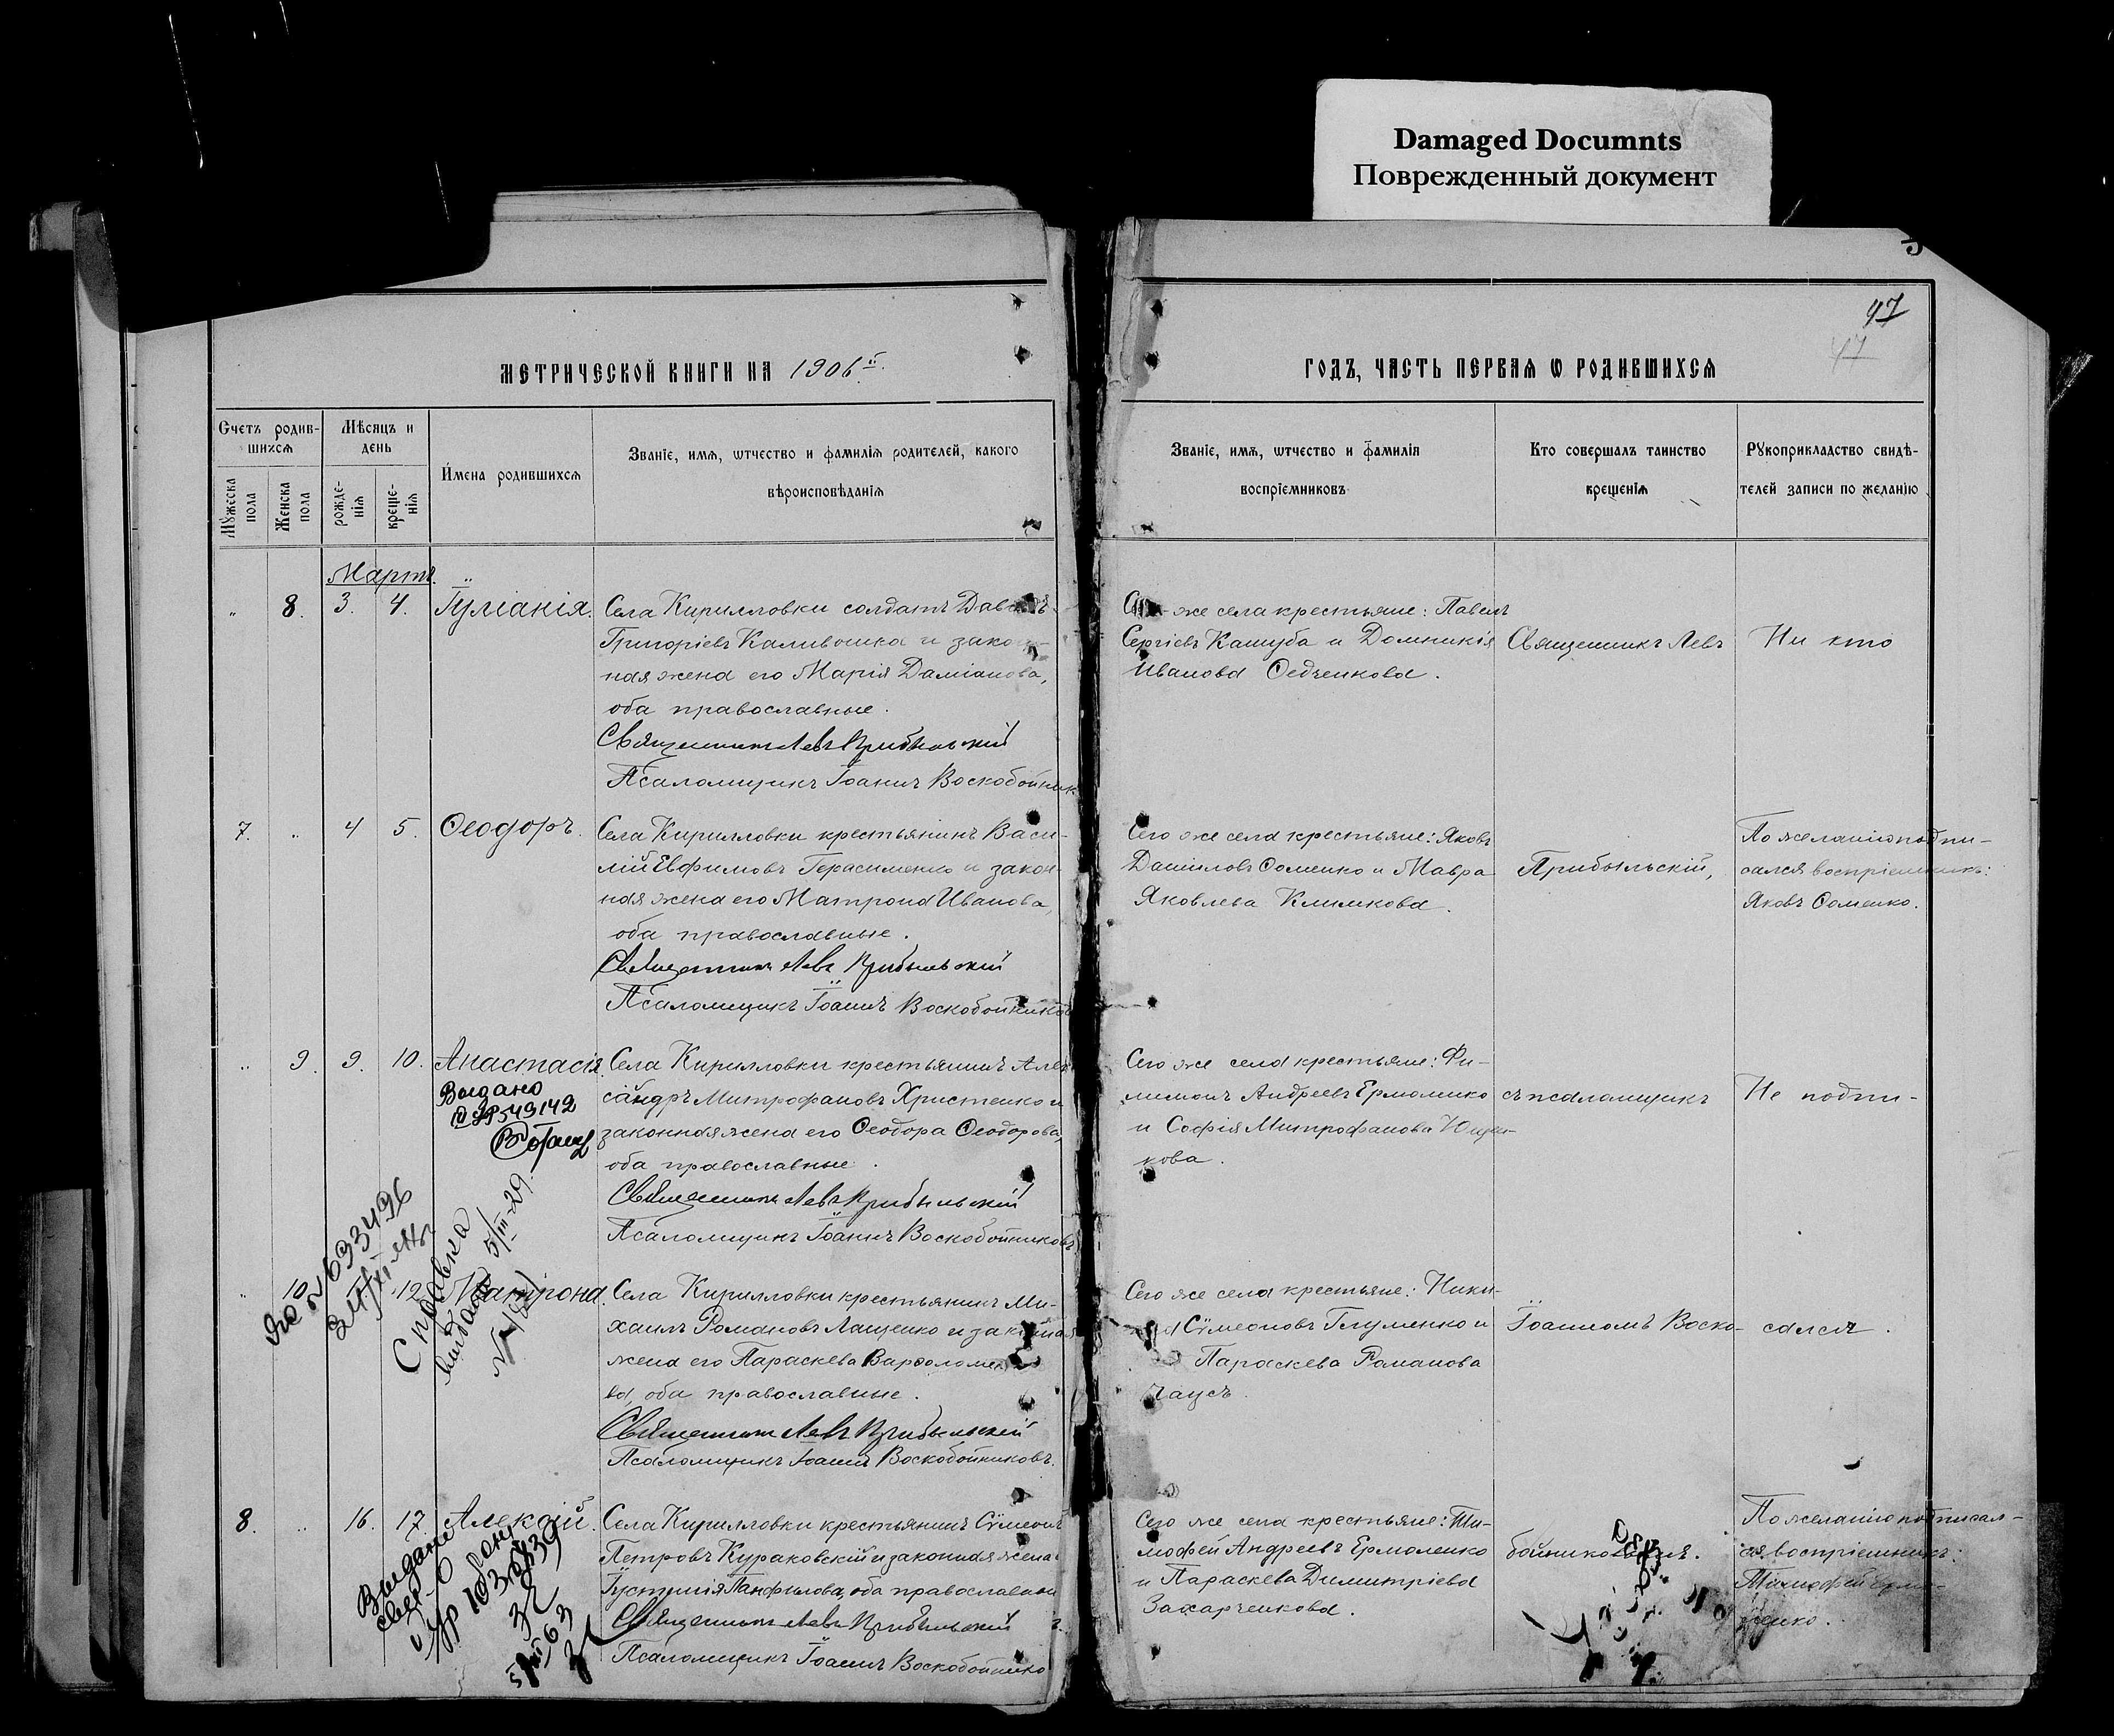 Damaged Documnts
Поврежденный документ
47
47
МЕТРИЧЕСКОЙ КНИГИ НА 1906й.
ГОДЪ, ЧАСТЬ ПЕРВАЯ Ѡ РОДИВШИХСЯ
Счетъ родив-
шихся
Мѣсяцъ и
день
Имена родившихся
Званіе, имя, ѡтчество и фамилія родителей, какого
вѣроисповѣданія
Мужеска
пола
Женска
пола
рожде-
нія
креще-
нія
Званіе, имя, ѡтчество и фамилія
воспріемниковъ
Кто совершалъ таинство
крещенія
Рукоприкладство свидѣ-
телей записи по желанію
Мартъ.
„ 8. 3. 4. Іуліанія. Села Кирилловки солдатъ Давидъ
Григоріевъ Каливошка и закон-
ная жена его Марія Даміанова,
оба православные.
Священникъ Левъ Прибыльскій
Псаломщикъ Іоаннъ Воскобойник
же села крестьяне: Павелъ
Сергіевъ Кашуба и Домникія
Иванова Федченкова.
Священникъ Левъ
Ни кто
7. „ 4 5. Ѳеодоръ. Села Кирилловки крестьянинъ Васи-
лій Евфимовъ Герасименко и закон-
ная жена его Матрона Иванова,
оба православные.
Священникъ Левъ Прибыльскій
Псаломщикъ Іоаннъ Воскобойников
Сего же села крестьяне: Яковъ
Даниловъ Соменко и Мавра
Яковлева Климкова.
Прибыльскій,
По желанію подпи-
сался воспріемникъ:
Яковъ Соменко.
„ 9. 9. 10. Анастасія. Села Кирилловки крестьянинъ Алек
сандръ Митрофановъ Христенко и
законная жена его Ѳеодора Ѳеодорова,
оба православные.
Священникъ Левъ Прибыльскій
Псаломщикъ Іоаннъ Воскобойниковъ
Выдано
543142
Сего же села крестьяне: Фи-
лимонъ Андреевъ Ермоленко
и Софія Митрофанова Ющен-
кова.
съ псаломщикъ
Не подпи-
633496
Справка
выдана 5/III-29.
„ 10 12 Матрона. Села Кирилловки крестьянинъ Ми-
хаилъ Романовъ Лащенко и законная
жена его Параскева Варѳоломее
ва, оба православные.
Священникъ Левъ Прибыльскій
Псаломщикъ Іоаннъ Воскобойниковъ.
Сего же села крестьяне: Ники-
Сѵмеоновъ Глуменко и
Параскева Романова
Чаусъ.
Іоанномъ Воско-
сался.
8. „ 16. 17. Алексій. Села Кирилловки крестьянинъ Сѵмеонъ
Петровъ Кураковскій и законная жена
Іустинія Панфилова, оба православные
Священникъ Левъ Прибыльскій
Псаломщикъ Іоаннъ Воскобойнико
Выдано
Сего же села крестьяне: Ти-
моѳей Андреевъ Ермоленко
и Параскева Димитріева
Захарченкова.
По желанію подписал-
ся воспріемникъ:
Тимоѳей Ермо-
ленко.